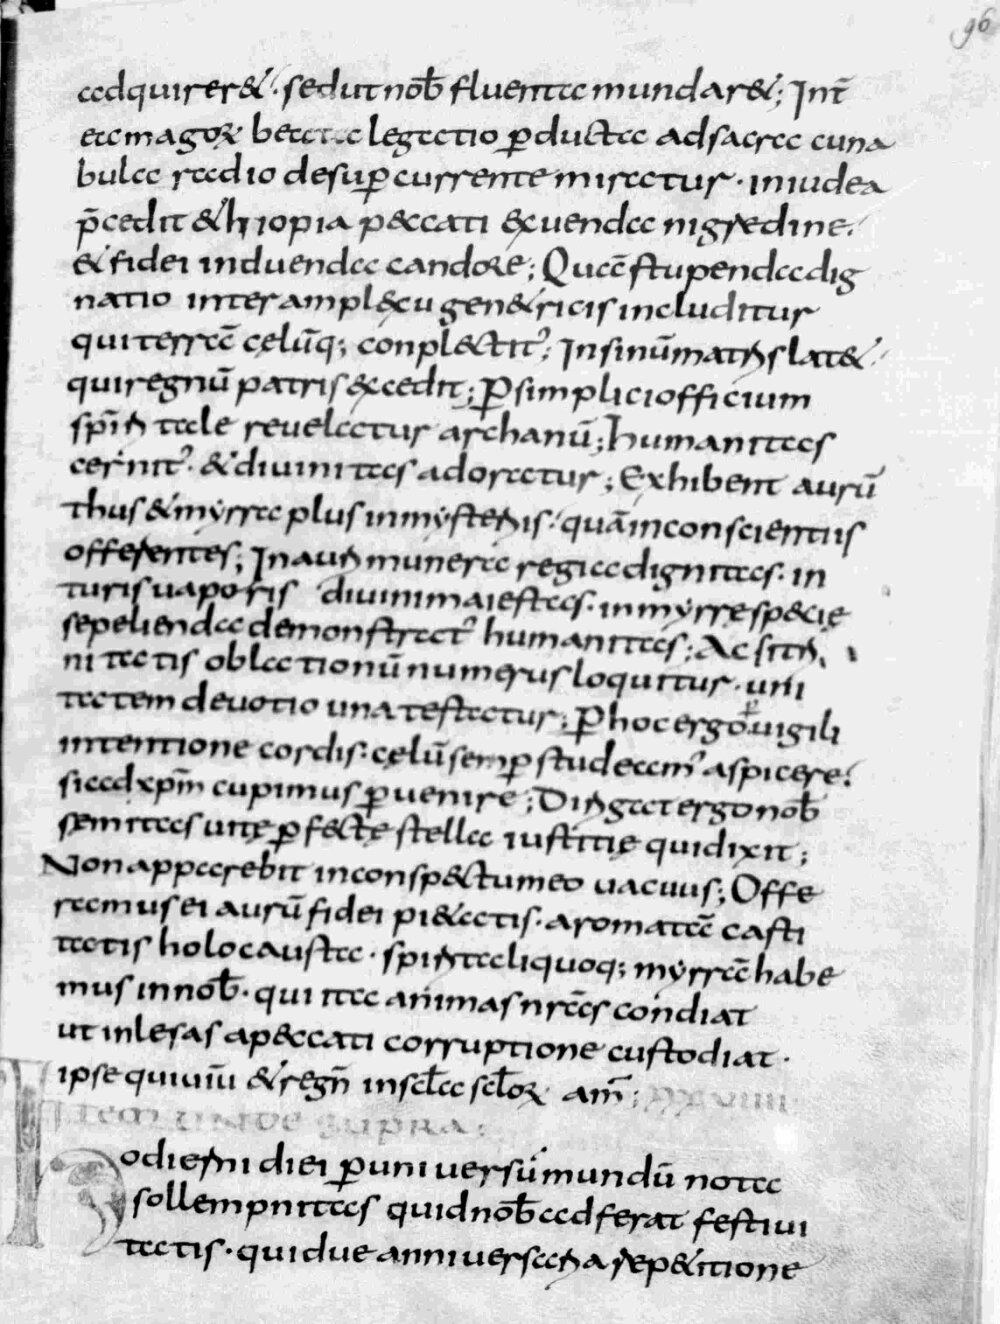 96
adquirer&· sedut nob̄ fluenta mundar&; Int̄
ea magoꝝ beata legatio ꝑducta ad sacra cuna
bula radio desuꝑ currente miratur· iniudea
p̄cedit &hiopia peccati exuenda nigredine·
& fidei induenda candore; Quā stupenda dig
natio inter amplexu gen&ricis includitur
qui terrā cęlūq; conplectit᷒; In sinū matris lat&·
qui regnū patris excedit; Ꝑ simplici officium
sp̄ritale reuelatur archanū; humanitas
cernit᷒· & diuinitas adoratur; Exhibent aurū
thus & myrra plus in mysteriis· quā in conscientiis
offerentes; In auri munera regia dignitas· in
turis uaporis diuini maiestas· in myrre specię
sepelienda demonstrat᷒ humanitas; Ac si tri
nitatis oblationū numerus loquitur· uni
tatem deuotio una testatur; Ꝑ hoc ergo ꝑuigili
intentione cordis· cęlū semꝑ studeam᷒ aspicere·
si ad xp̄m cupimus ꝑuenire; Dirigat ergo nob̄
semitas uitę ꝑfectę stella iustitię qui dixit;
Non apparebit in conspectu meo uacuus; Offe
ramus ei aurū fidei pi&atis· aromatā casti
tatis holocausta· spiritali quoq; myrrā habe
mus in nob̄· qui ita animas nr̄as condiat
ut inlesas a peccati corruptione custodiat·
ipse qui uiuī & regn̄ in scl̄a scl̄oꝝ am̄; XXVIIII
ITEM UNDE SUPRA;
Hodierni diei ꝑ uniuersū mundū nota
sollempnitas quid nob̄ adferat festiui
tatis· quidue anniuersaria rep&itione